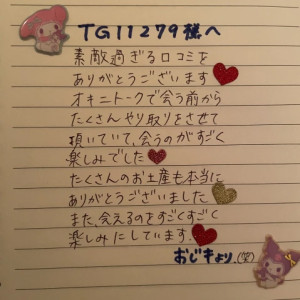 TG11279様へ
素敵過ぎる口コミを
ありがとうございます
オキニトークで会う前から
たくさんやり取りをさせて
頂いていて、会うのがすごく
楽しみでした
たくさんのお土産も本当に
ありがとうございました
また、会えるのをすごくすごく
楽しみにしています。
おじきより、(笑)